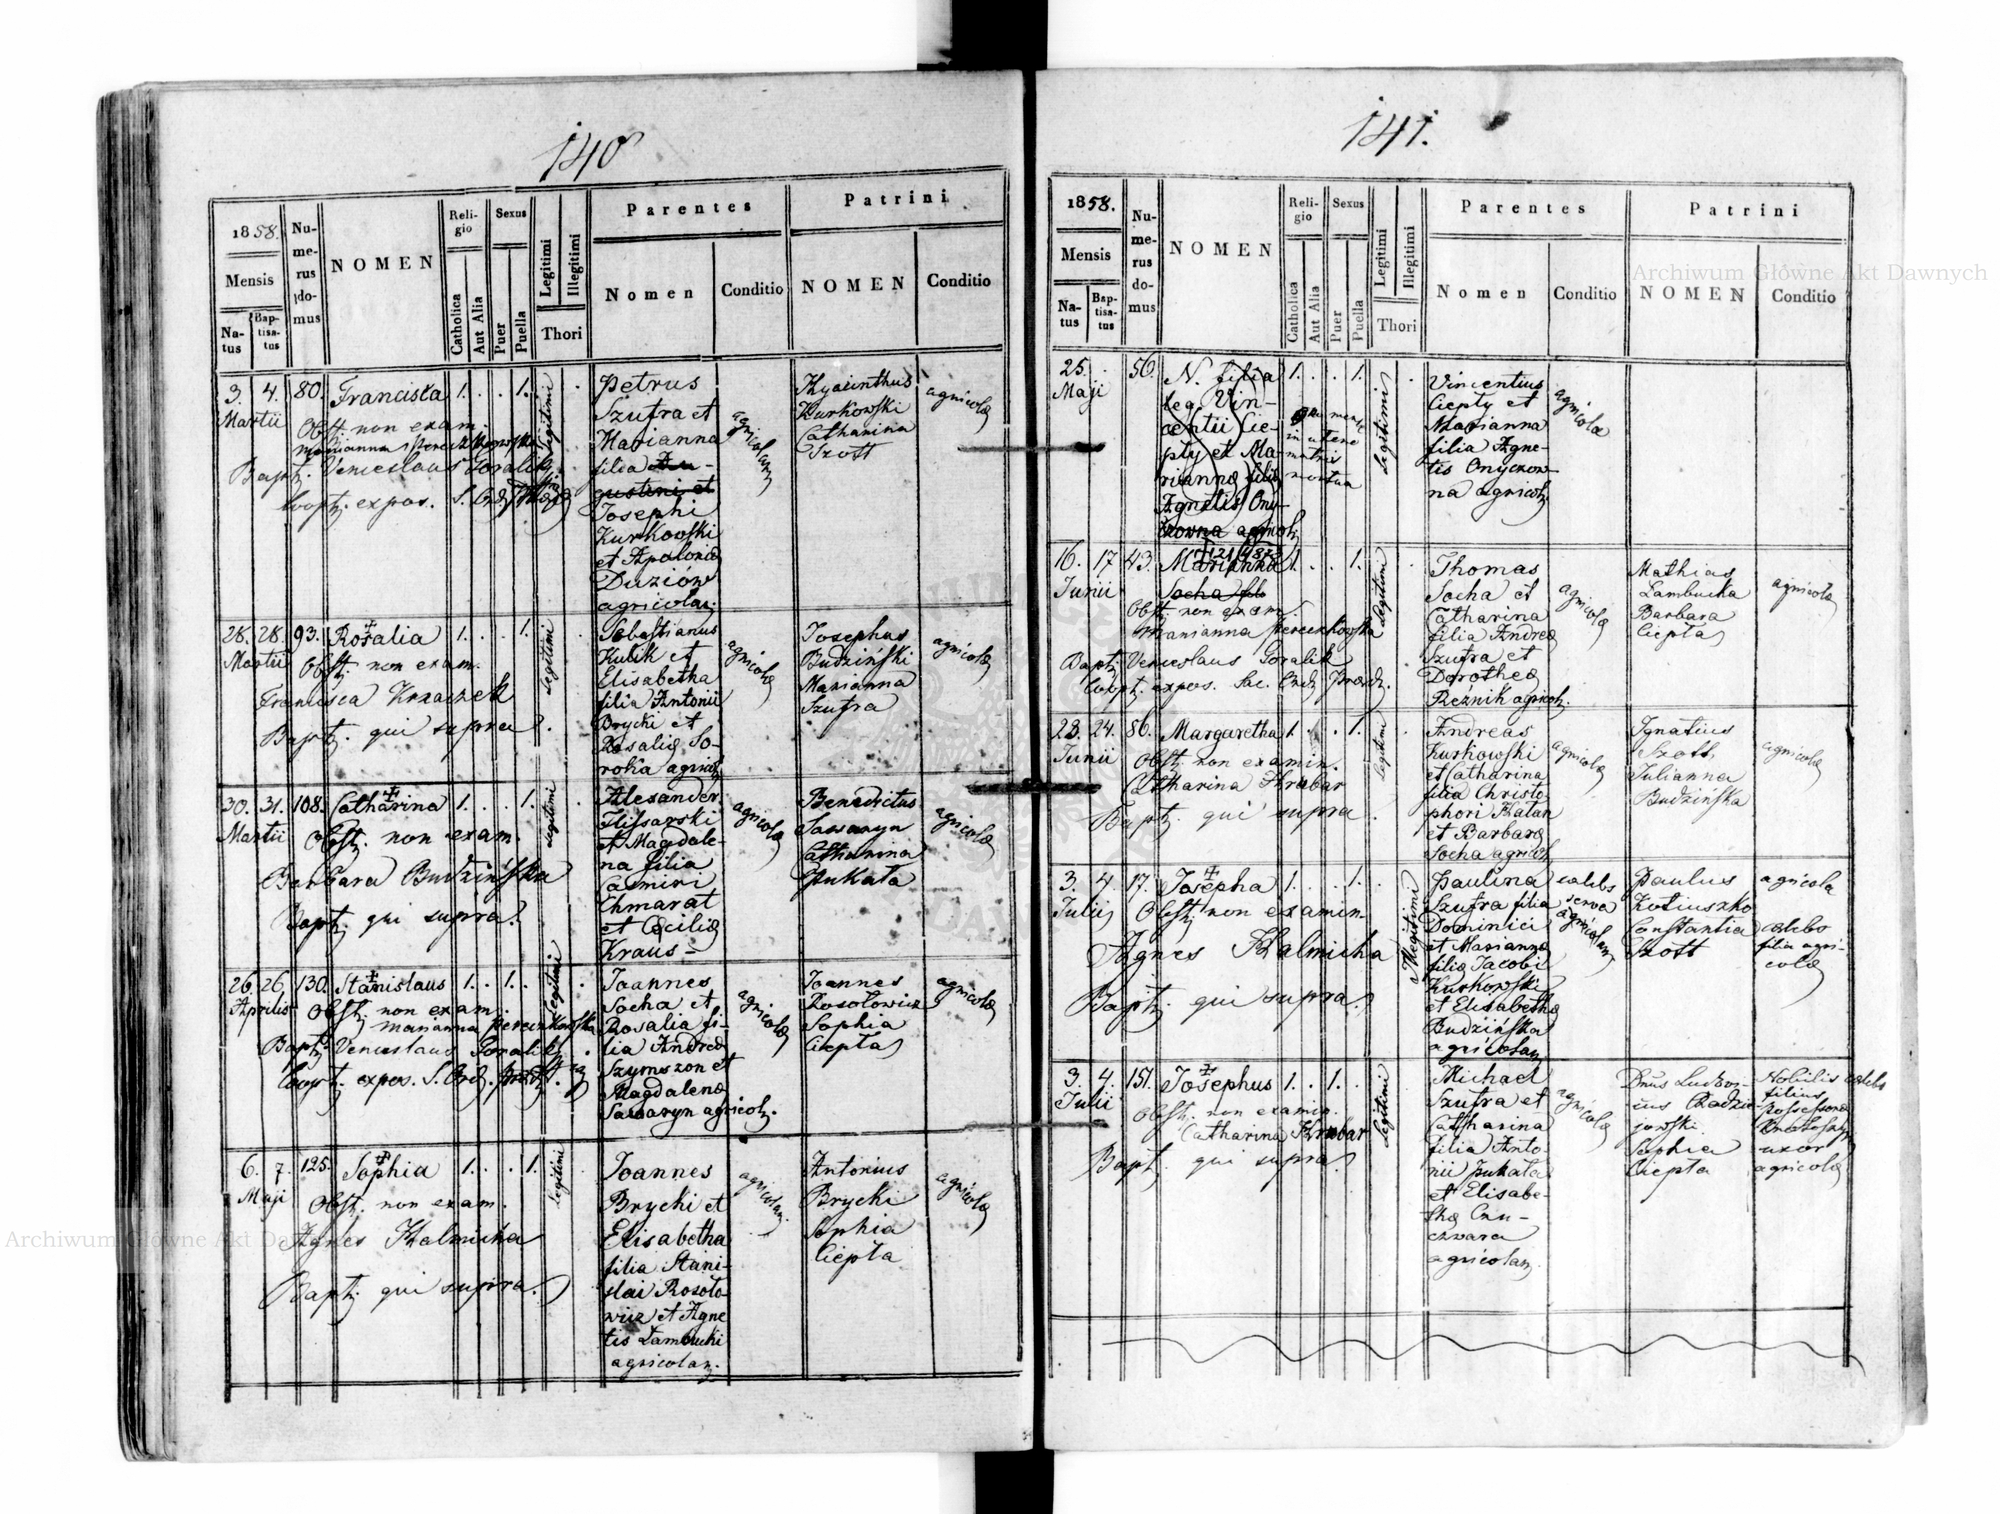 140
1858.
Mensis
Na-
tus
Bap-
tisa-
tus
Nu-
me-
rus
do-
mus
NOMEN
Reli-
gio
Catholica
Aut Alia
Sexus
Puer
Puella
Legitimi
Illegitimi
Thori
Parentes
Nomen
Conditio
Patrini
NOMEN
Conditio
3. 4. 80. Francisca 1. . . 1.
Martii
Obst. non exam.
Marianna Pereczkowska
Bapt. Venceslaus Goralik
Coopt. expos. S. Ord.
legitimi
Petrus
Szufra et
Marianna
filia Au-
gustini et
Josephi
Kurkowski
et Apolonia
Duziów
agricolar.
agricolar.
Hyacinthus
Kurkowski
Catharina
Szott
agricolæ
28. 28. 93. Rosalia 1. . . 1.
Martii
Obst. non exam.
Francisca Krzaczek
Bapt. qui supra.
legitimi
Sebastianus
Kulik et
Elisabetha
filia Antonii
Brycki et
Rosaliæ So-
roka agricol.
agricolæ
Josephus
Budziński
Marianna
Szufra
agricolæ
30. 31. 108. Catharina 1. . . 1.
Martii
Obst. non exam.
Barbara Budzińska
Bapt. qui supra.
legitimi
Alexander
Flissarski
et Magdale-
na filia
Casimiri
Chmarat
et Cæciliæ
Kraus -
agricolæ
Benedictus
Sawaryn
Catharina
Pukała
agricolæ
26. 26. 130. Stanislaus 1. . 1. .
Aprilis
Obst. non exam.
Marianna Pereczkowska
Bapt. Venceslaus Goralik
Coopt. expos. S. Ord.
legitimi
Joannes
Socha et
Rosalia fi-
lia Andreæ
Szymszon et
Magdalenæ
Sawaryn agricol.
agricolæ
Joannes
Rosołowicz
Sophia
Ciepła
agricolæ
6. 7. 125. Sophia 1. . . 1.
Maji
Obst. non exam.
Agnes Halmicha
Bapt. qui supra.
legitimi
Joannes
Brycki et
Elisabetha
filia Stani-
slai Rosoło-
wicz et Agne
tis Łambucki
agricolar.
agricolar.
Antonius
Brycki
Sophia
Ciepła
agricolæ
141.
1858.
Mensis
Na-
tus
Bap-
tisa-
tus
Nu-
me-
rus
do-
mus
NOMEN
Reli-
gio
Catholica
Aut Alia
Sexus
Puer
Puella
Legitimi
Illegitimi
Thori
Parentes
Nomen
Conditio
Patrini
NOMEN
Conditio
25. 56. N. filia 1. . . 1.
Maji
leg. Vin-
centii Cie-
pły et Ma-
riannæ filiæ
Agnetis Ony-
kowna agricol.
mense
in utero
matris
mortua
legitimi
Vincentius
Ciepły et
Marianna
filia Agne-
tis Onyczow-
na agricol.
agricolæ
16. 17 43. Marianna 1. . . 1.
Junii
Socha
Obst. non exam.
Marianna Pereczkowska
Bapt. Venceslaus Goralik
Coopt. expos. Sac. Ord. Præd.
legitimi
Thomas
Socha et
Catharina
filia Andreæ
Szufra et
Dorotheæ
Reźnik agricol.
agricolæ
Mathias
Łambucka
Barbara
Ciepła
agricolæ
23. 24. 86. Margaretha 1. . . 1.
Junii
Obst. non examin.
Catharina Hrabar
Bapt. qui supra.
legitimi
Andreas
Kurkowski
et Catharina
filia Christo
phori Hałan
et Barbaræ
Socha agricol.
agricolæ
Ignatius
Szott
Julianna
Budzińska
agricolæ
3. 4. 17. Josepha 1. . . 1.
Julii
Obst. non examin.
Agnes Halmicha
Bapt. qui supra.
illegitimi
Paulina
Szufra filia
Dominici
et Marianna
filiæ Jacobi
Kurkowski
et Elisabethæ
Budzińska
agricolar.
cælebs
serva
agricolar.
Paulus
Kościuszko
Constantia
Szott
agricola
cælebs
filia agri-
colæ
3. 4. 151. Josephus 1. . 1. .
Julii
Obst. non examin.
Catharina Hrabar
Bapt. qui supra.
legitimi
Michael
Szufra et
Catharina
filia Anto-
nii Pukała
et Elisabe-
thæ Czu-
czwara
agricolar.
agricolæ
Dnus Ludovi-
cus Radzie-
jowski
Sophia
Ciepła
Nobilis cælebs
filius
Possessoris
uxor
agricolæ
Archiwum Główne Akt Dawnych
Archiwum Główne Akt Dawnych